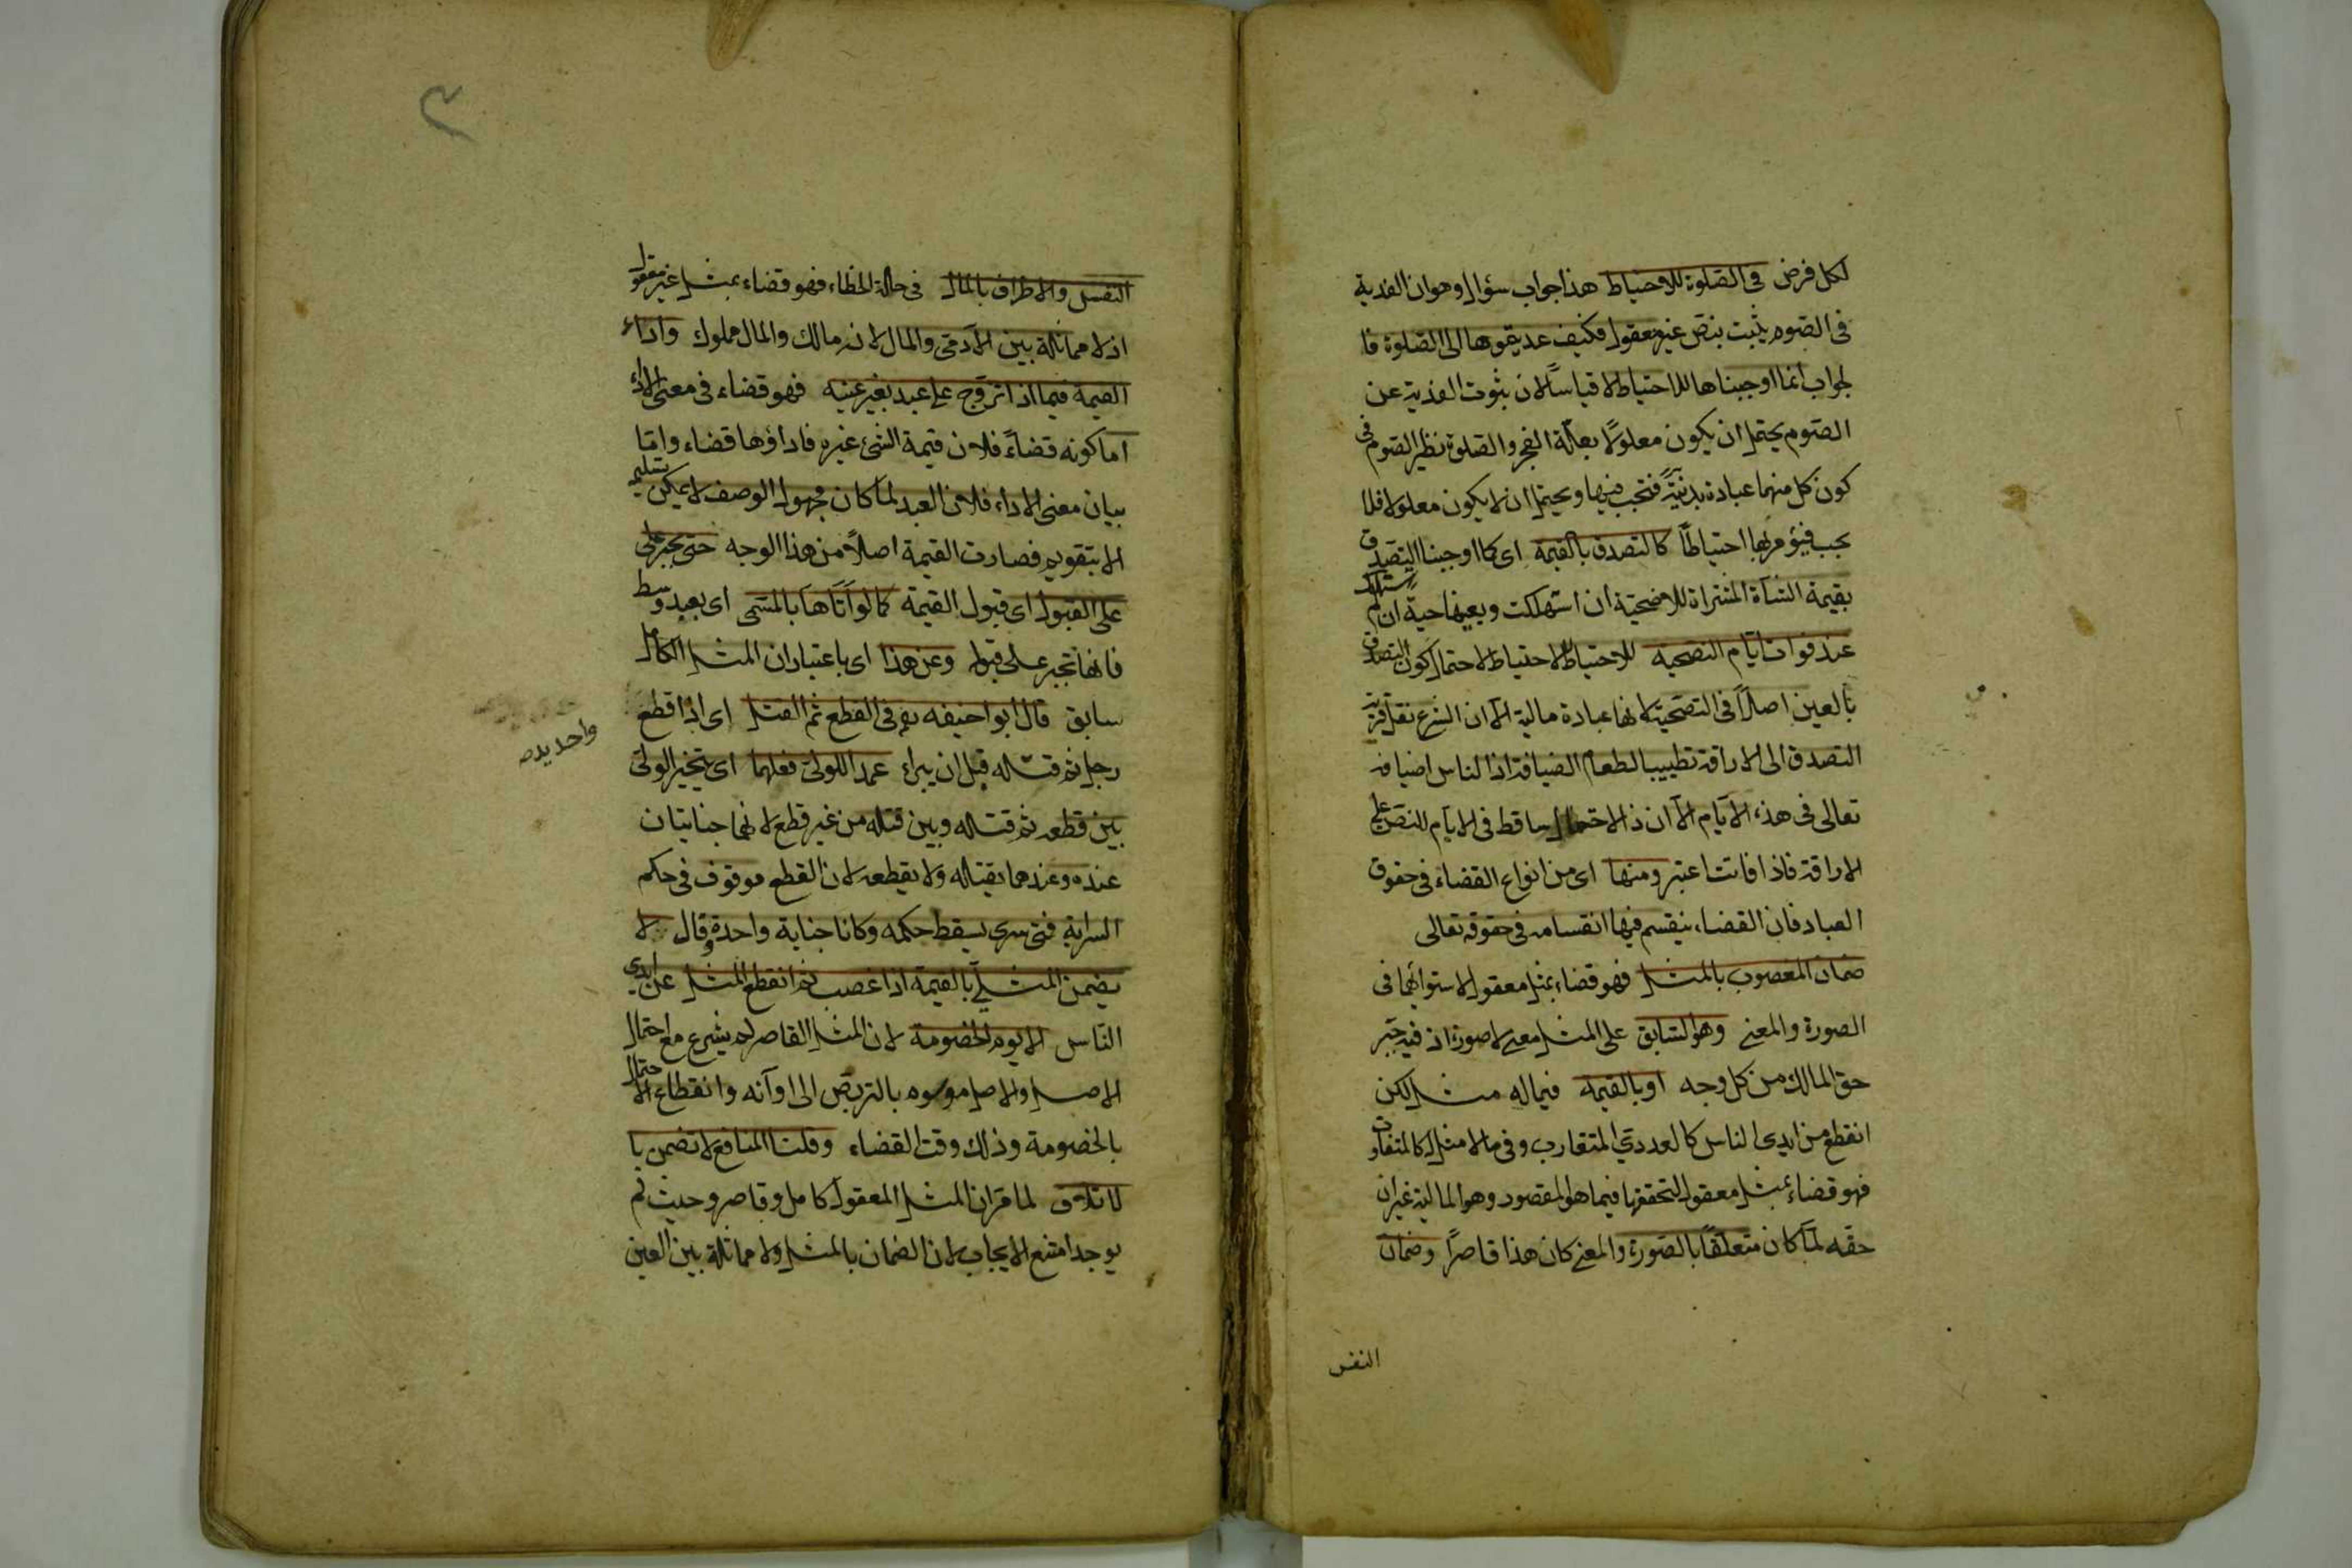 لكل فرض فى الصلوة للاحتياط هذا جواب سؤال وهو ان الفدية
فى الصوم يثبت بنص غير معقول فكيف عديتموها الى الصلوة فا
لجواب انما اوجبناها للاحتياط لا قياسًا لان ثبوت الفدية عن
الصوم يحتمل ان يكون معلولًا بعلة العجز والصلوة نظير الصوم فى
كون كل منهما عبادة بدنيّةً فتجب فيها ويحتمل ان لا يكون معلولا فلا
يجب فيؤمر بها احتياطًا كالتصدق بالقيمة اى كما اوجبنا التصدق
بقيمة الشاة المشتراة للاضحيّة ان استهلكت وبعينها حية ان لم يستهلك
عند فوات ايام التضحية للاحتياط لاحتمال كون التصدق
بالعين اصلًا فى التضحية لانها عبادة مالية الّا ان الشرع نقل قربة
التصدق الى الاراقة تطييبا لطعام الضيافة اذ الناس اضياف
تعالى فى هذه الايام الّا ان ذ الاحتمال ساقط فى الايام للنص على
الاراقة فاذا فاتت اعتبر ومنها اى من انواع القضاء فى حقوق
العباد فان القضاء ينقسم فيها انقسامه فى حقوقه تعالى
ضمان المغصوب بالمثل فهو قضاء بمثل معقول لاستوائهما فى
الصورة والمعنى وهو السابق على المثل معنى لا صورة اذ فيه جبر
حق المالك من كل وجه او بالقيمة فيما له مثل لكن
انقطع من ايدى الناس كالعددي المتقارب وفى ما لا مثل له كالمتفاوت
فهو قضاء بمثل معقول لتحققها فيما هو المقصود وهو المالية غير ان
حقه لمّا كان متعلقًا بالصورة والمعنى كان هذا قاصرًا وضمان
النفس
٣
النفس والاطراف بالمال فى حالة الخطاء فهو قضاء بمثل غير معقول
اذ لا مماثلة بين الآدمى والمال لانه مالك والمال مملوك واداء
القيمة فيما اذا تزوّج على عبد بغير عينه فهو قضاء فى معنى الاداء
اما كونه قضاءً فلان قيمة الشئ غيره فاداؤها قضاء وامّا
بيان معنى الاداء فلان العبد لمّا كان مجهول الوصف لا يمكن تسليمه
الا بتقويمه فصارت القيمة اصلاً من هذا الوجه حتى يجبر على
على القبول اى قبول القيمة كما لو اتاها بالمسمى اى بعبد وسط
فانها تجبر على قبوله وعن هذا اى باعتبار ان المثل الكامل
سابق قال ابو احنيفه فى القطع ثم القتل اى اذا قطع
واحد يده
رجل ثم قتله قبل ان يبراء عمدا للولى فعلهما اى يتخير الولى
بين قطعه ثم قتله وبين قتله من غير قطع لانهما جنايتان
عنده وعندهما يقتله ولا يقطعه لان القطع موقوف فى حكم
السراية فمتى سرى يسقط حكمه وكانا جناية واحدة وقال لا
يضمن المثلي بالقيمة اذا غصب ثم انقطع المثل عن ايدي
الناس الا يوم الخصومة لان المثل القاصر لم يشرع مع احتمال
الاصل والاصل موهوم بالتربّص الى اوآنه وانقطاع الاحتمال
بالخصومة وذلك وقت القضاء وقلنا المنافع لا تضمن با
لاتلاف لما مر ان المثل المعقول كامل وقاصر وحيث لم
يوجد امتنع الايجاب لان الضمان بالمثل ولا مماثلة بين العين